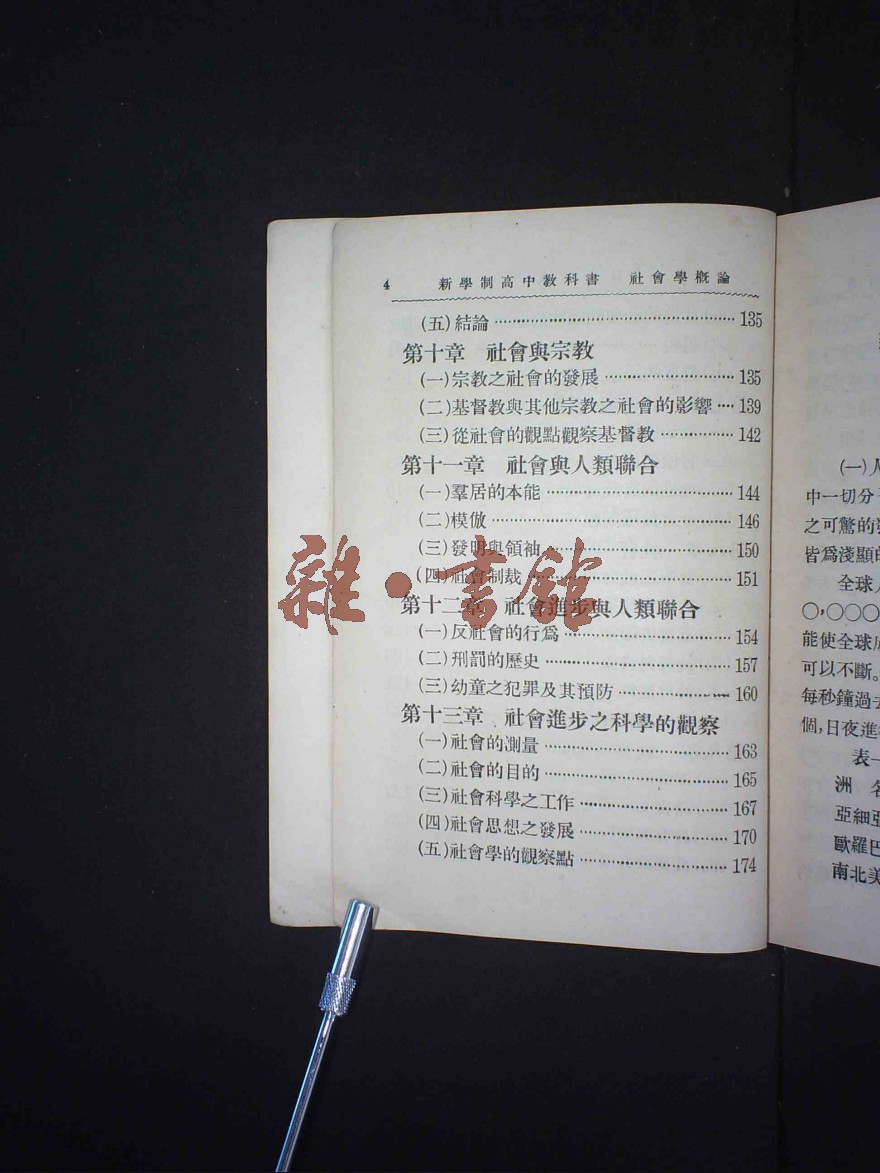 4 新學制高中教科書 社會學概論
(五)結論 135
第十章 社會與宗教
(一)宗教之社會的發展 135
(二)基督教與其他宗教之社會的影響 139
(三)從社會的觀點觀察基督教 142
第十一章 社會與人類聯合
(一)羣居的本能 144
(二)模倣 146
(三)發明與領袖 150
(四)社會制裁 151
第十二章 社會進步與人類聯合
(一)反社會的行爲 154
(二)刑罰的歷史 157
(三)幼童之犯罪及其預防 160
第十三章 社會進步之科學的觀察
(一)社會的測量 163
(二)社會的目的 165
(三)社會科學之工作 167
(四)社會思想之發展 170
(五)社會學的觀察點 174
雜·書館
(一)人
中一切分
之可驚的
皆爲淺顯的
全球人
〇,〇〇〇
能使全球
可以不斷。
每秒鐘過去
個,日夜進
表一
洲 名
亞細亞
歐羅巴
南北美